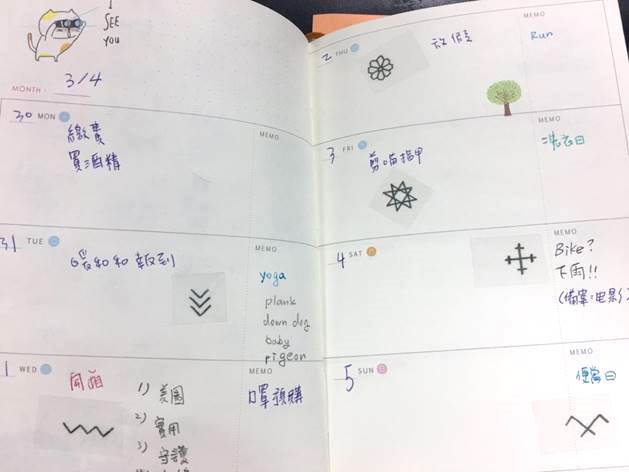 I
SEE
YOU
MONTH: 3/4
30 MON
MEMO
繳費
買酒精
31 TUE
MEMO
暖和和報到
yoga
plank
down dog
baby
pigeon
1 WED
MEMO
1) 美圖
2) 實用
3) 守護
口罩預購
2 THU
MEMO
放假
Run
3 FRI
MEMO
剪喵指甲
洗衣日
4 SAT
MEMO
Bike?
下雨!!
(備案:電影)
5 SUN
MEMO
便當日